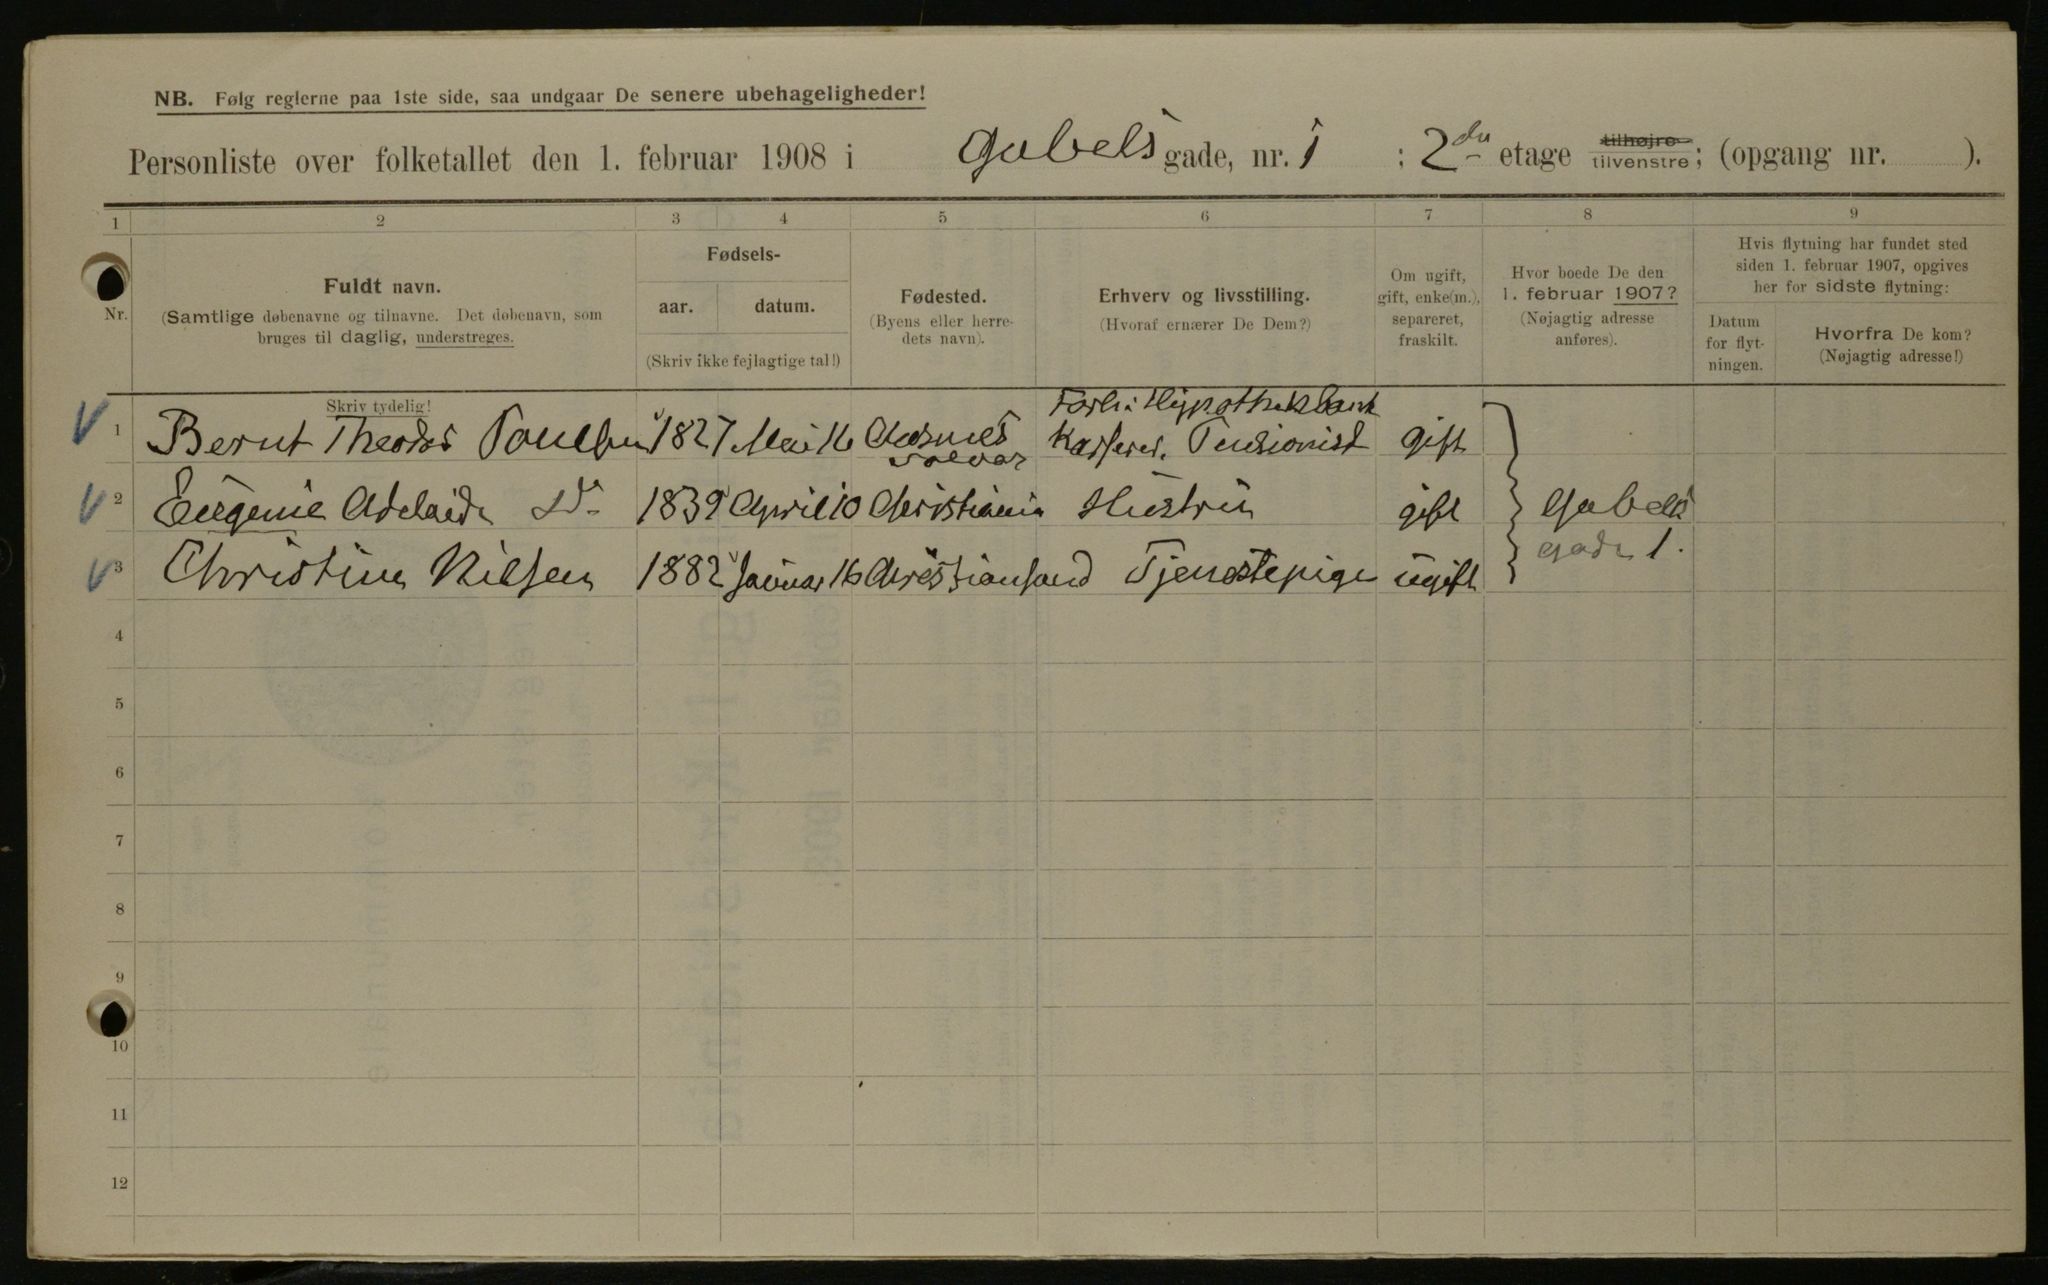 NB. Følg reglerne paa 1ste side, saa undgaar De senere ubehageligheder!
Personliste over folketallet den 1. februar 1908 i Gabels gade, nr. 1 : 2den etage tilhøjre tilvenstre; (opgang nr. ).
1 2 3 4 5 6 7 8 9
Nr.
Fuldt navn.
(Samtlige døbenavne og tilnavne. Det døbenavn, som
bruges til daglig, understreges.
Fødsels-
aar. datum.
(Skriv ikke fejlagtige tal!)
Fødested.
(Byens eller herre-
dets navn).
Erhverv og livsstilling.
(Hvoraf ernærer De Dem?)
Om ugift,
gift, enke(m.),
separeret,
fraskilt.
Hvor boede De den
1. februar 1907?
(Nøjagtig adresse
anføres).
Hvis flytning har fundet sted
siden 1. februar 1907, opgives
her for sidste flytning:
Datum
for flyt-
ningen.
Hvorfra De kom?
(Nøjagtig adresse!)
Skriv tydelig!
Forh: Hypothekbank
1 Bernt Theodor Poulsen 1827 Mai 16 Kasserer. Pensionist gift
2 Eugenie Adelaide Do 1839 April 10 Christiania Hustru gift Gabels
3 Christine Nielsen 1882 Januar 16 Christiansand Tjenestepige ugift gade 1.
4
5
6
7
8
9
10
11
12